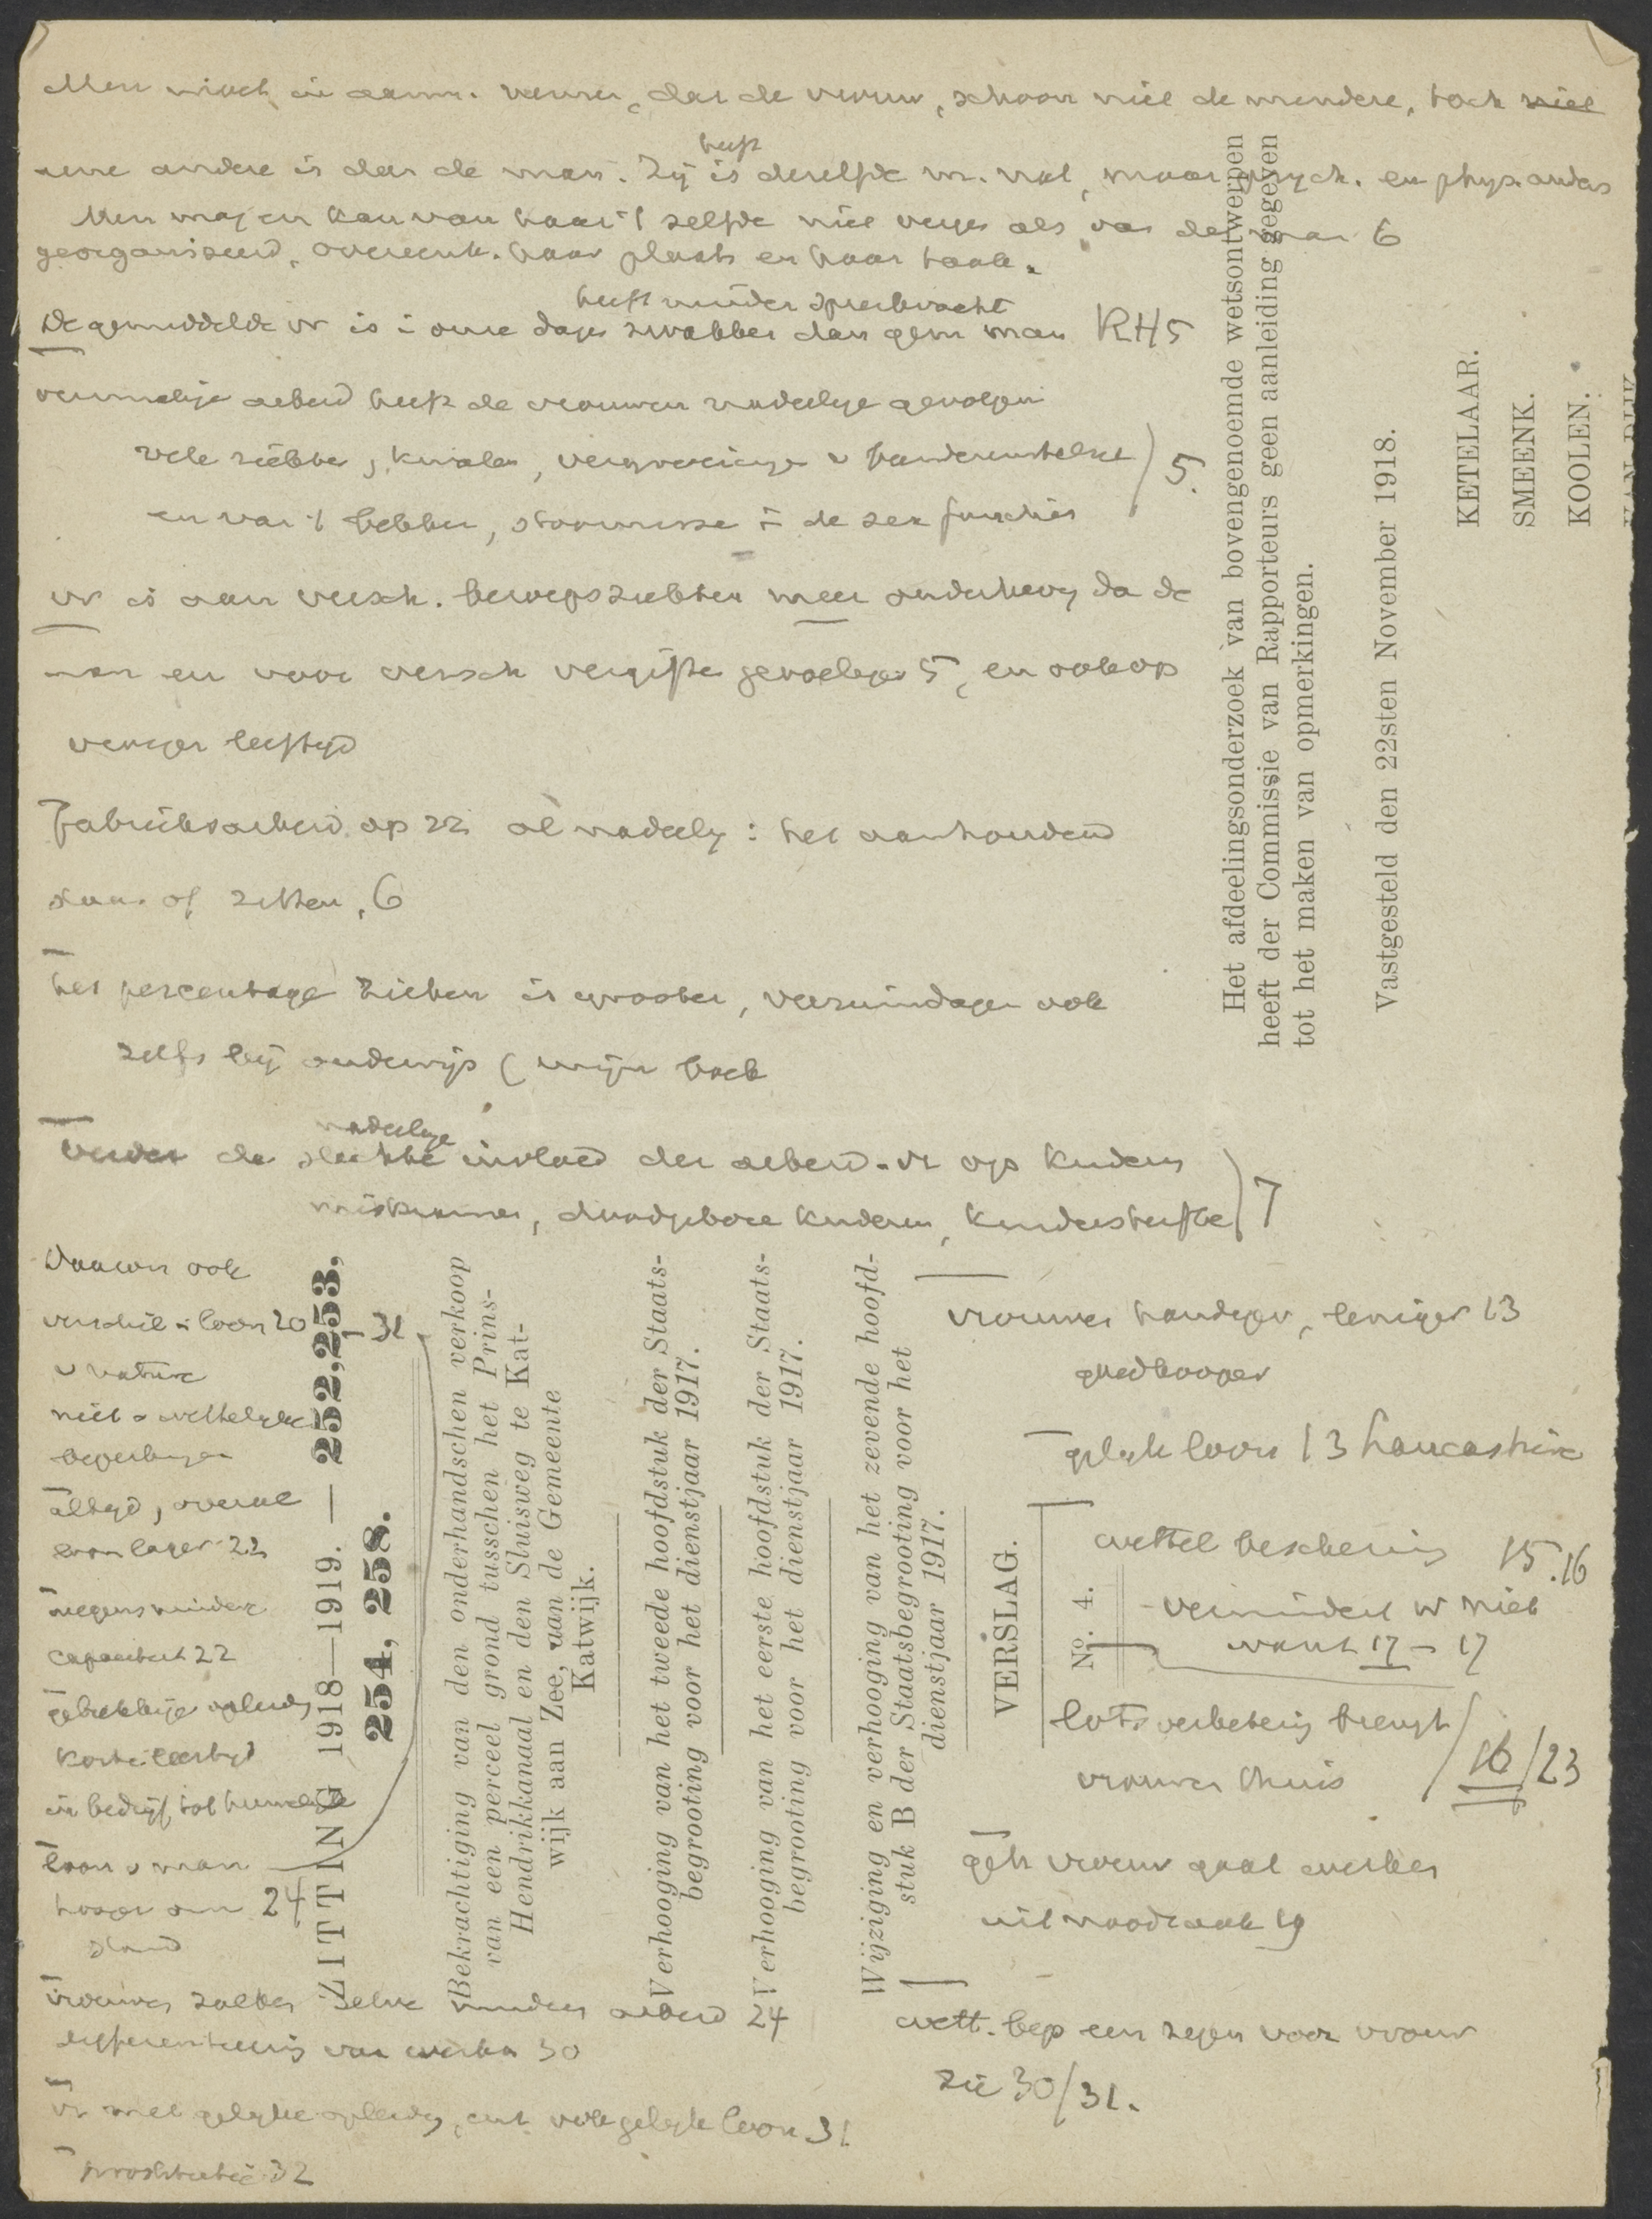 Men mach in aanm. nemen, dat de vrouw, schoon niet de mindere, toch niet
eene andere is dan de man. Zij is heeft dezelfde m. nat, maar psych. en phys. anders
Men maj en kan van haar 't zelfde niet verges als van de man 6
georganiseerd, overeenk. haar plaats en haar taak.
heeft minder spierkracht
De gemiddelde vr is i onze dagen zwakker dan gem man RH5
arbeid heeft de vrouwen nadeelige gevolgen
vele ziekten, kwalen, vergroeiingen v
en van 't bekken, stoornisse i de sex functies
5.
vr is aan versch. beroepsziekten meer onderhevig da de
man en voor versch vergiften gevoeliger 5, en ook op
jeugdiger leeftijd
Fabrieksarbeid op zn al nadeelig: het aanhoudend
staan of zitten, 6
het percentage zieken is grooter, verzuimdagen ook
zelfs bij onderwijs (mijn boek
nadeelige
Verder de slechte invloed der arbeid-vr op kinders
miskramen, doodgebore kinderen, kindersterfte 7
Daarom ook
verschil i loon 20 - 31
v nature
niet v wettelijke
beperkingen
altijd, overal
loon lager 22
wegens mindere
capaciteit 22
gebrekkige opleidg
korte leertijd
in bedrijf tot huwelijk
loon v man
hooger om 24
stand
Vrouwen zoeken zelve minder arbeid 24
differentieering van werken 30
vr met gelijke opleidg, ook gelijk loon 31
prostitutie 32
vrouwen handiger, leniger 13
goedkooper
gelijk loon 13 Lancashire
wettel bescherming 15.16
vermindert vr niet
want 17 - 17
lotsverbetering brengt
vrouwen thuis 16/23
geh vrouw gaat werken
uit noodzaak 19
wett. bep een zegen voor vrouw
zie 30/31.
ZITTING 1918—1919. — 252, 253,
254, 258.
Bekrachtiging van den onderhandschen verkoop
van een perceel grond tusschen het Prins-
Hendrikkanaal en den Sluisweg te Kat-
wijk aan Zee, aan de Gemeente
Katwijk.
Verhooging van het tweede hoofdstuk der Staats-
begrooting voor het dienstjaar 1917.
Verhooging van het eerste hoofdstuk der Staats-
begrooting voor het dienstjaar 1917.
Wijziging en verhooging van het zevende hoofd-
stuk B der Staatsbegrooting voor het
dienstjaar 1917.
VERSLAG.
No. 4.
Het afdeelingsonderzoek van bovengenoemde wetsontwerpen
heeft der Commissie van Rapporteurs geen aanleiding gegeven
tot het maken van opmerkingen.
Vastgesteld den 22sten November 1918.
KETELAAR.
SMEENK.
KOOLEN.
VAN RIJK